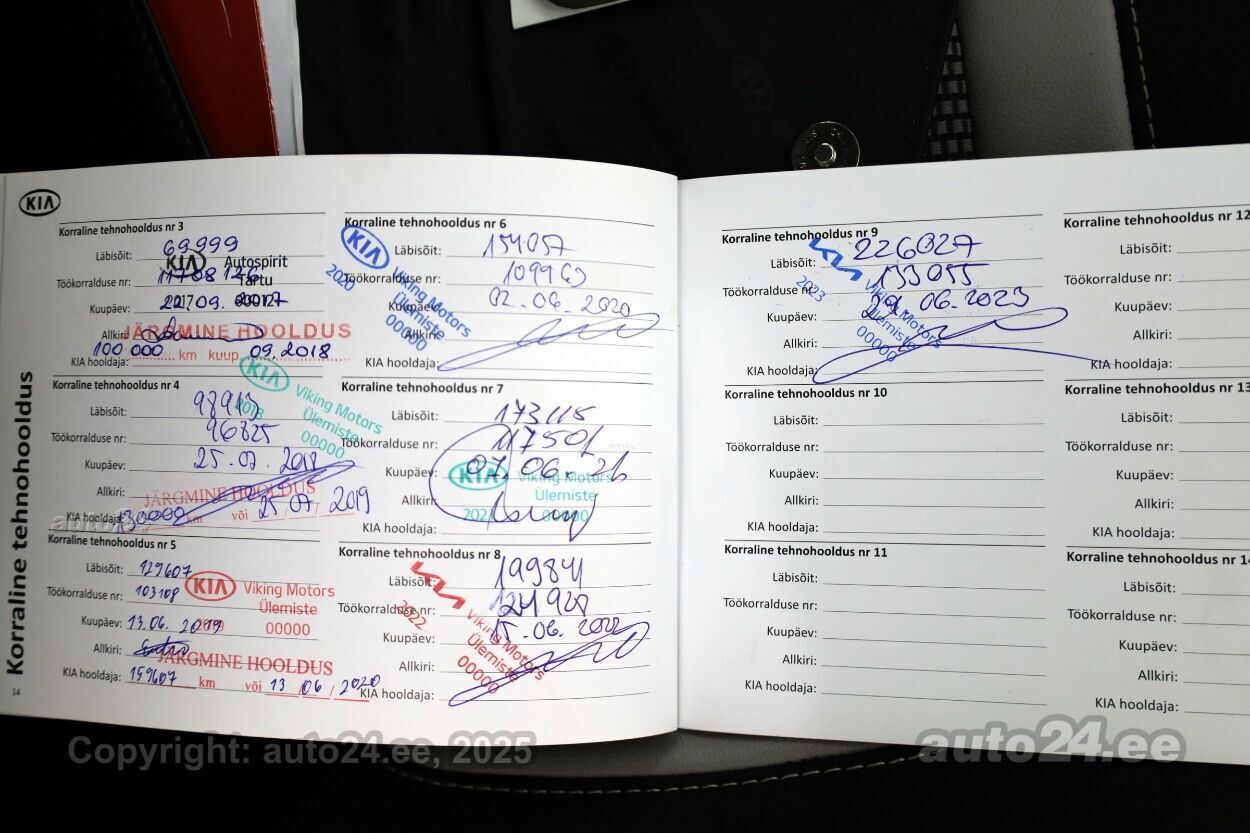 KIA
Korraline tehnohooldus
14
Korraline tehnohooldus nr 3
Läbisõit: 69999
KIA Autospirit
Töökorralduse nr: 11708126
Tartu
Kuupäev: 20.09.2017
2017 00012
Allkiri:
JÄRGMINE HOOLDUS
100 000 km kuup. 09.2018
KIA hooldaja:
Korraline tehnohooldus nr 4
KIA Viking Motors
2018 Ülemiste
00000
Läbisõit: 98913
Töökorralduse nr: 96825
Kuupäev: 25.07.2018
Allkiri:
JÄRGMINE HOOLDUS
KIA hooldaja: 130000 km või 25 07 2019
Korraline tehnohooldus nr 5
Läbisõit: 129607
KIA Viking Motors
Töökorralduse nr: 103108
Ülemiste
Kuupäev: 13.06.2019
2019 00000
Allkiri:
JÄRGMINE HOOLDUS
KIA hooldaja: 159607 km või 13 / 06 / 2020
Korraline tehnohooldus nr 6
KIA Viking Motors
2020 Ülemiste
00000
Läbisõit: 154057
Töökorralduse nr: 109963
Kuupäev: 02.06.2020
Allkiri:
KIA hooldaja:
Korraline tehnohooldus nr 7
Läbisõit: 173115
Töökorralduse nr: 117501
Kuupäev: 07.06.21
KIA Viking Motors
Ülemiste
Allkiri:
2021 00000
KIA hooldaja:
Korraline tehnohooldus nr 8
Läbisõit: 199841
Töökorralduse nr: 124928
2022 Viking Motors
Ülemiste
00000
Kuupäev: 15.06.2022
Allkiri:
KIA hooldaja:
Korraline tehnohooldus nr 9
Läbisõit: 226027
Töökorralduse nr: 133055
2023 Viking Motors
Ülemiste
00000
Kuupäev: 29.06.2023
Allkiri:
KIA hooldaja:
Korraline tehnohooldus nr 10
Läbisõit:
Töökorralduse nr:
Kuupäev:
Allkiri:
KIA hooldaja:
Korraline tehnohooldus nr 11
Läbisõit:
Töökorralduse nr:
Kuupäev:
Allkiri:
KIA hooldaja:
Korraline tehnohooldus nr 12
Läbisõit:
Töökorralduse nr:
Kuupäev:
Allkiri:
KIA hooldaja:
Korraline tehnohooldus nr 13
Läbisõit:
Töökorralduse nr:
Kuupäev:
Allkiri:
KIA hooldaja:
Korraline tehnohooldus nr 14
Läbisõit:
Töökorralduse nr:
Kuupäev:
Allkiri:
KIA hooldaja:
Copyright: auto24.ee, 2025
auto24.ee